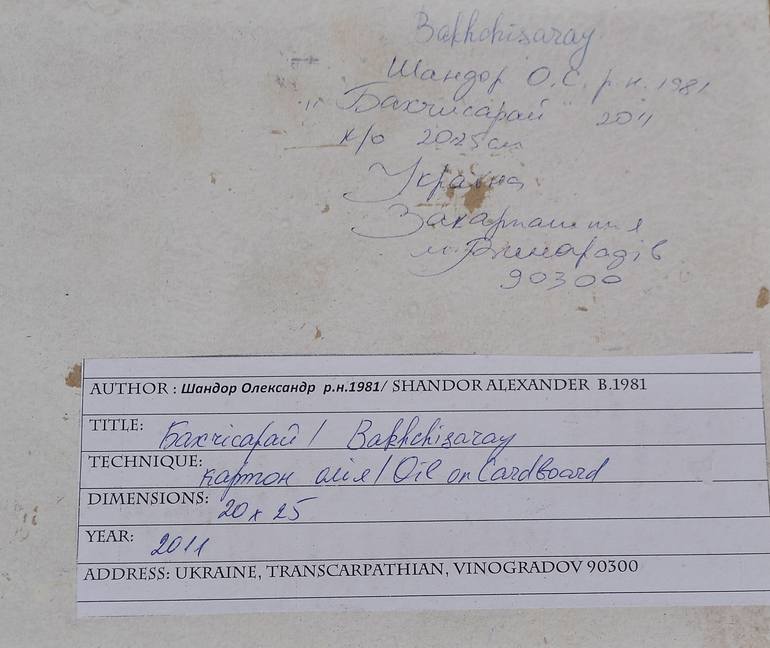 Bakhchisaray
Шандор О.С. р.н. 1981
"Бахчисарай" 2011
к/о 20x25см
Україна
Закарпаття
м. Виноградів
90300
AUTHOR : Шандор Олександр р.н.1981/ SHANDOR ALEXANDER B.1981
TITLE: Бахчісарай / Bakhchisaray
TECHNIQUE: картон олія / Oil on Cardboard
DIMENSIONS: 20 x 25
YEAR: 2011
ADDRESS: UKRAINE, TRANSCARPATHIAN, VINOGRADOV 90300